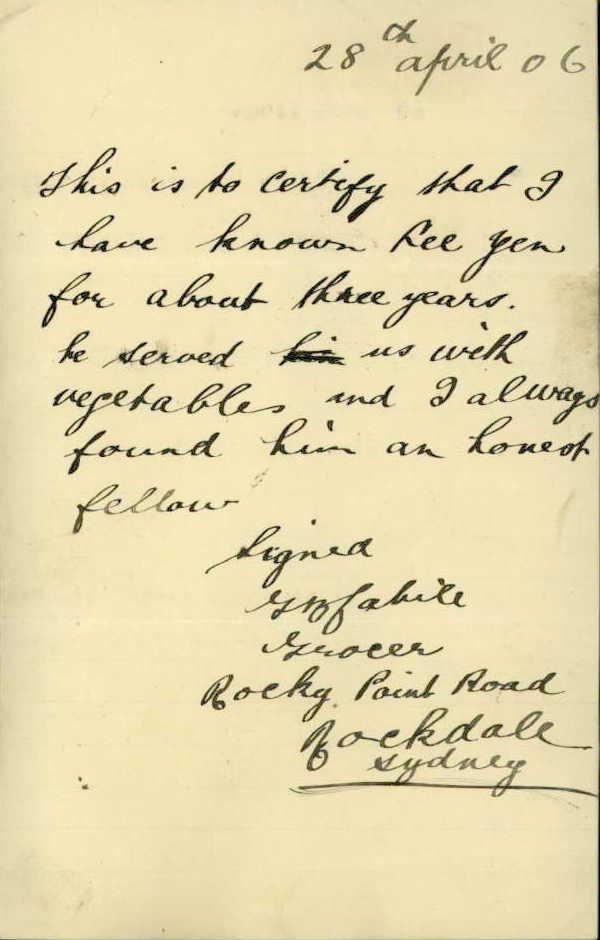 28th april 06
This is to certify that I
have known Lee yen
for about three years.
he served us with
vegetables and I always
found him an honest
fellow
Signed
Grocer
Rocky Point Road
Rockdale
Sydney